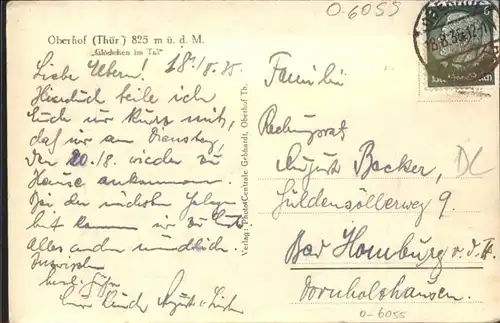 O-6055
Oberhof (Thür.) 825 m ü. d. M.
„Glöckchen im Tal"
18./8.35.
Liebe Eltern!
Hierdurch teile ich
Euch nur kurz mit,
daß wir am Dienstag,
den 20./8. wieder zu
Hause ankommen.
Bei der nächsten Gelegen-
heit kommen wir zu Euch
Alles andere mündlich.
Inzwischen
herzl. Grüße
Eure Kinder August u.
Verlag: Photo-Centrale Gebhardt, Oberhof Th.
Familie
Rechnungsrat
August Becker,
DC
Güldensöllerweg 9.
Bad Homburg v. d. H.
Dornholzhausen.
O-6055
6